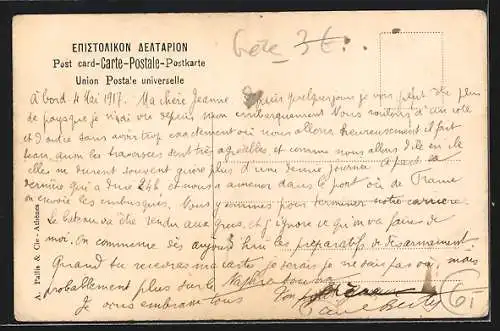 ΕΠΙΣΤΟΛΙΚΟΝ ΔΕΛΤΑΡΙΟΝ
Post card-Carte-Postale-Postkarte
Union Postale universelle
A. Pallis & Cie - Athènes
à bord 4 Mai 1917. Ma chère Jeanne Depuis quelques jours je vois plus de
pays que je n'ai vu depuis mon embarquement Nous voulons d'un côté
et d'autre sans savoir trop exactement où nous allons heureusement il fait
beau, aussi les traversées sont très agréables et comme nous allons d'île en île
elles ne durent souvent guère plus d'une demi journée à part la
dernière qui a duré 24h et nous a amenés dans le port où de France
on envoie les embusqués. Nous y sommes pour terminer notre carrière
Le bateau va être vendu aux grecs, et j'ignore ce qu'on va faire de
moi. On commence dès aujourd'hui les préparatifs de désarmement.
Quand tu recevras ma carte je serai je ne sais pas où, mais
probablement plus sur le
Je vous embrasse tous